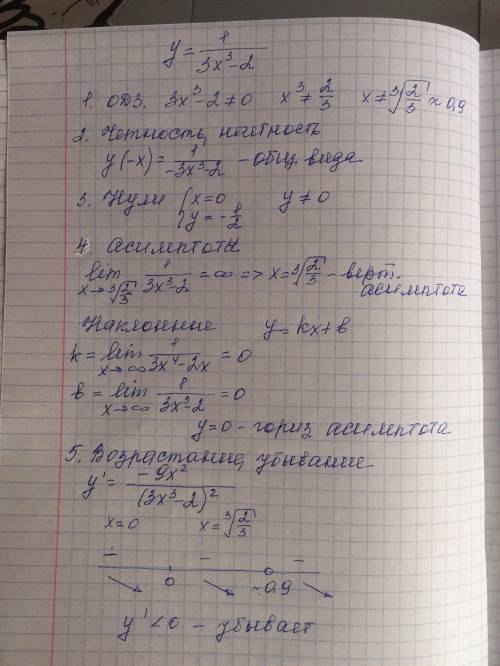 y = 1/(3x³-2)
1. ОДЗ. 3x³-2≠0 x³≠2/3 x≠∛(2/3) ≈ 0,9
2. Четность, нечетность
y(-x) = 1/(-3x³-2) - общ. вида
3. Нули {x=0 y=-1/2 y≠0
4. Асимптоты
lim x→∛(2/3) 1/(3x³-2) = ∞ => x=∛(2/3) - верт. асимптота
Наклонные y=kx+b
k = lim x→∞ 1/(3x⁴-2x) = 0
b = lim x→∞ 1/(3x³-2) = 0
y=0 - гориз асимптота
5. Возрастание, убывание
y' = -9x²/(3x³-2)²
x=0 x=∛(2/3)
- - -
0 ~0,9
y'<0 - убывает